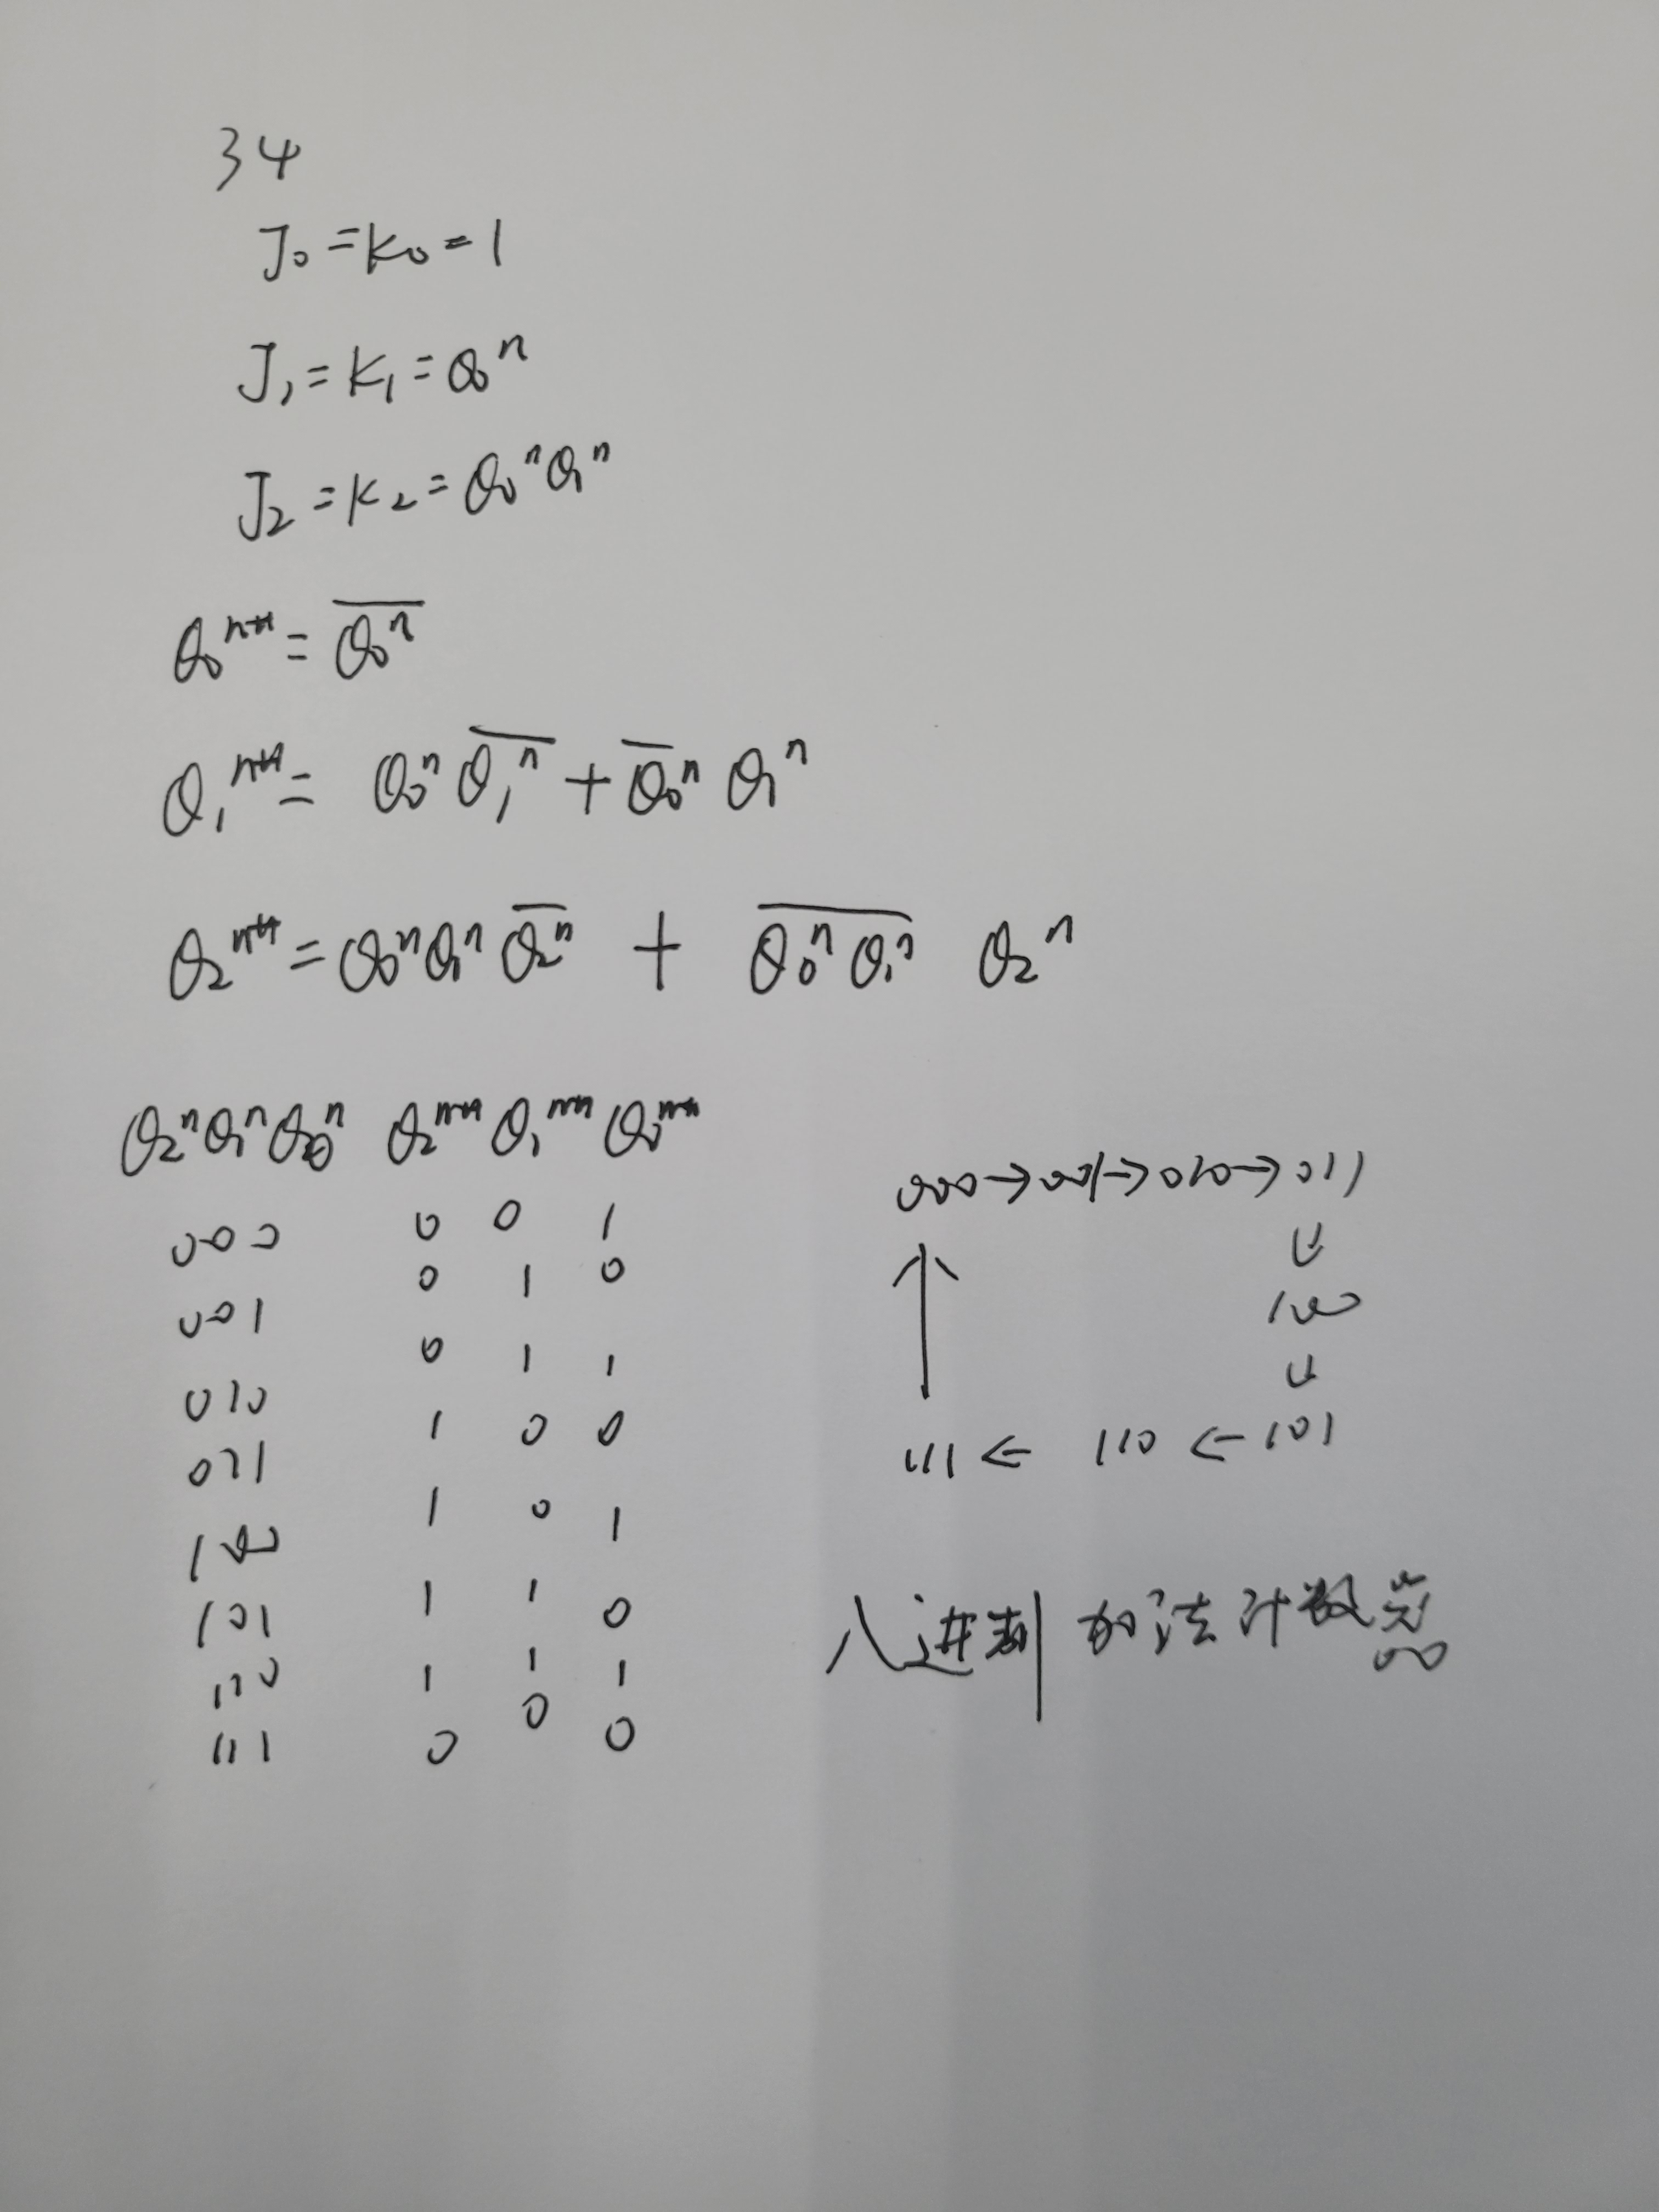 34
J₀=K₀=1
J₁=K₁=Q₀ⁿ
J₂=K₂=Q₀ⁿQ₁ⁿ
Q₀ⁿ⁺¹=\overline{Q₀ⁿ}
Q₁ⁿ⁺¹=Q₀ⁿ\overline{Q₁ⁿ}+\overline{Q₀}ⁿQ₁ⁿ
Q₂ⁿ⁺¹=Q₀ⁿQ₁ⁿ\overline{Q₂ⁿ}+\overline{Q₀ⁿQ₁ⁿ} Q₂ⁿ
Q₂ⁿQ₁ⁿQ₀ⁿ Q₂ⁿ⁺¹Q₁ⁿ⁺¹Q₀ⁿ⁺¹
000 0 0 1
001 0 1 0
010 0 1 1
011 1 0 0
100 1 0 1
101 1 1 0
110 1 1 1
111 0 0 0
000→001→010→011
↓
100
↓
↑
111←110←101
八进制加法计数器